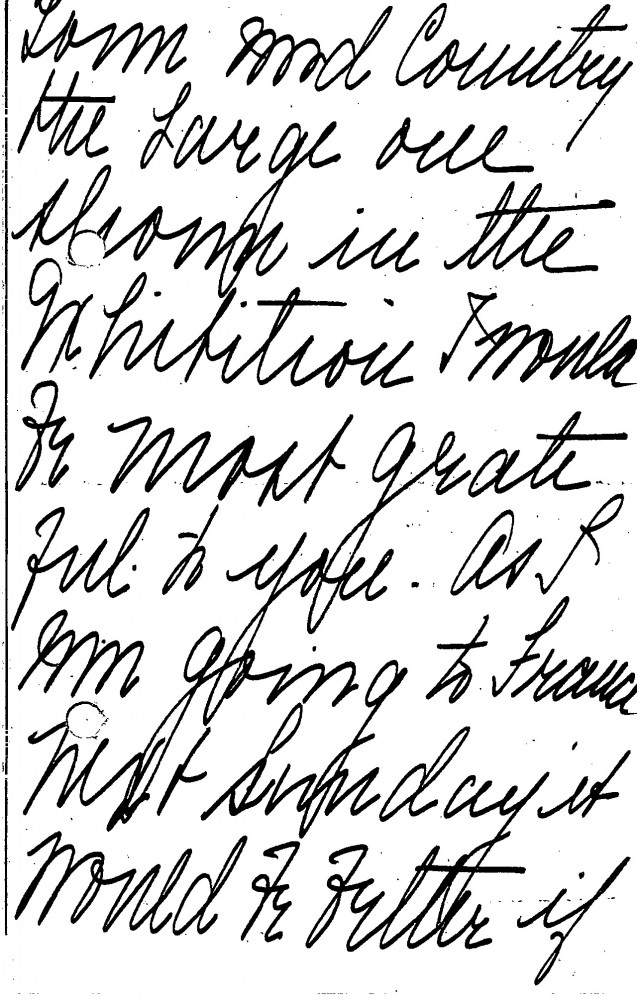 Town and Country
the large one
shown in the
Exhibition I would
be most grate
ful to you. As I
am going to France
next Sunday it
would be better if